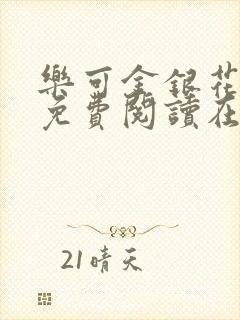 樂可金銀花
免費閱讀在
21晴天